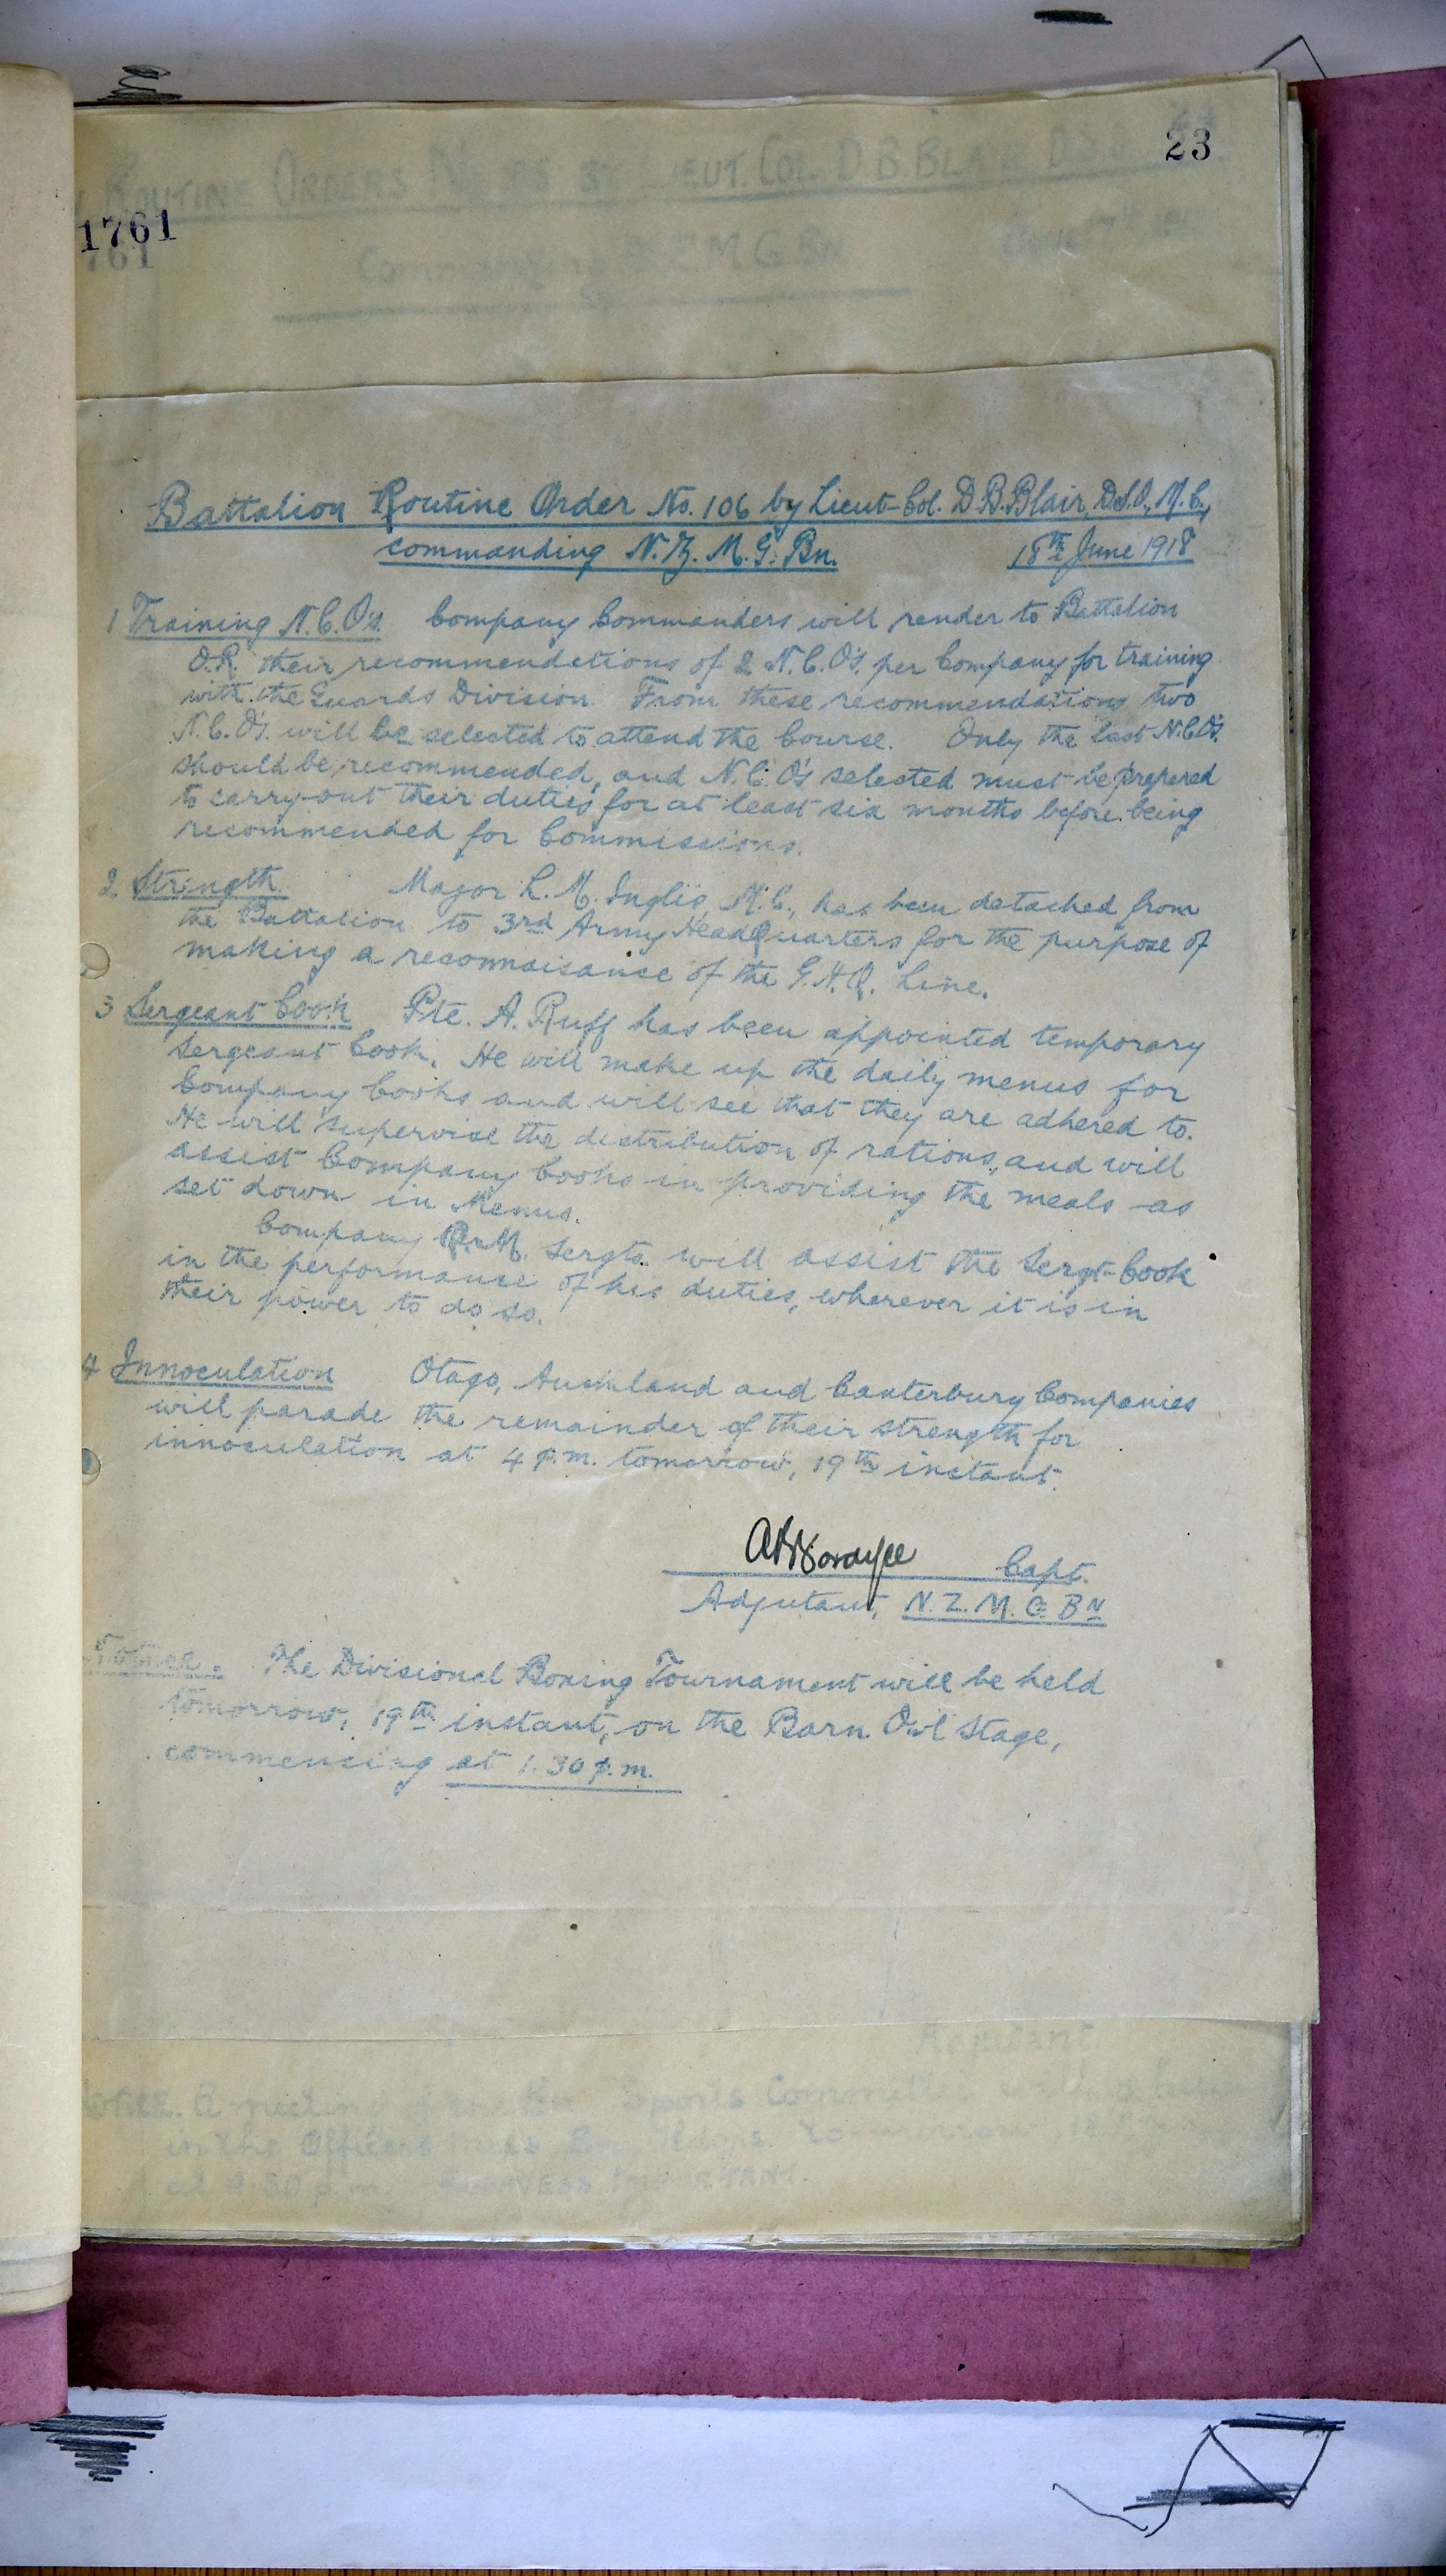 23
1761
ROUTINE ORDERS BY LIEUT. COL. D.B. BLAIR D.S.O.
Commanding N.Z.M.G.BN.
Battalion Routine Order No. 106 by Lieut-Col. D.B. Blair, D.S.O., M.C.,
commanding N.Z. M.G. Bn.
18th June 1918
1 Training N.C.O's. Company Commanders will render to Battalion
O.R. their recommendations of 2 N.C.O's. per Company for training
with the Guards Division. From these recommendations two
N.C.O's. will be selected to attend the Course. Only the best N.C.O's.
should be recommended, and N.C.O's selected must be prepared
to carry-out their duties for at least six months before being
recommended for Commissions.
2 Strength. Major L.M. Inglis, M.C., has been detached from
the Battalion to 3rd Army HeadQuarters for the purpose of
making a reconnaisance of the G.H.Q. Line.
3 Sergeant Cook Pte. A. Ruff has been appointed temporary
Sergeant Cook. He will make up the daily menus for
Company Cooks and will see that they are adhered to.
He will supervise the distribution of rations, and will
assist Company Cooks in providing the meals as
set down in Menus.
Company Q.M. Sergts. will assist the Sergt-Cook
in the performance of his duties, wherever it is in
their power to do so.
4 Innoculation Otago, Auckland and Canterbury Companies
will parade the remainder of their strength for
innoculation at 4 p.m. tomorrow, 19th instant.
Capt.
Adjutant, N.Z. M.G. BN
Notice. The Divisional Boxing Tournament will be held
tomorrow, 19th instant, on the Barn Owl Stage,
commencing at 1.30 p.m.
Adjutant.
NOTICE. A meeting of the Bn Sports Committee will be
in the Officers Mess Hdqrs. to-morrow, 18th
at 4.30 p.m. IMPORTANT.